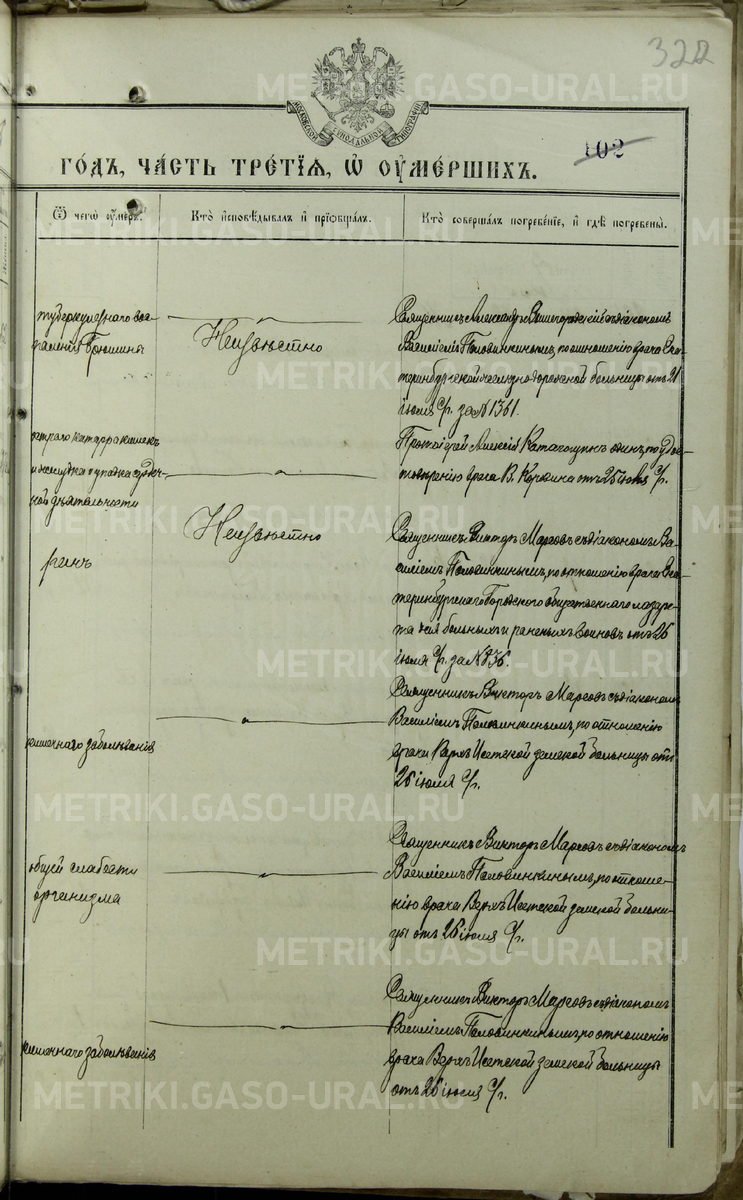 322
МОСКОВСКОЙ СѴНОДАЛЬНОЙ ТИПОГРАФІИ
102
ГОДЪ, ЧАСТЬ ТРЕТІЯ, Ѿ ОУМЕРШИХЪ.
Ѿ чегѡ оумеръ.
Кто исповѣдывалъ и прїѡбщалъ.
Кто совершалъ погребенїе, и гдѣ погребены.
туберкулезнаго вос-
паленія брюшины
Неизвѣстно
Священникъ Александръ съ діакономъ
Василіемъ Половинкинымъ, по отношенію врача Ека-
теринбургской железнодорожной больницы отъ 21
іюля с/г. за № 1361.
остраго катарра кишекъ
и желудка и упадка сердеч-
ной дѣятельности
Протоіерей Алексій одинъ, по удос-
товѣренію врача В. отъ 25 іюля с/г.
ранъ
Неизвѣстно
Священникъ Викторъ Марсовъ съ діакономъ Ва-
силіемъ Половинкинымъ, по отношенію врача Ека-
теринбургскаго Городского общественнаго лазаре-
та для больныхъ и раненыхъ воиновъ отъ 26
іюля с/г. за № 836.
кишечнаго заболѣванія
Священникъ Викторъ Марсовъ съ діакономъ
Василіемъ Половинкинымъ, по отношенію
врача Верхъ Исетской земской больницы отъ
26 іюля с/г.
общей слабости
организма
Священникъ Викторъ Марсовъ съ діакономъ
Василіемъ Половинкинымъ, по отноше-
нію врача Верхъ Исетской земской больни-
цы отъ 26 іюля с/г.
кишечнаго заболѣванія
Священникъ Викторъ Марсовъ съ діакономъ
Василіемъ Половинкинымъ, по отношенію
врача Верхъ Исетской земской больницы
отъ 26 іюля с/г.
METRIKI.GASO-URAL.RU